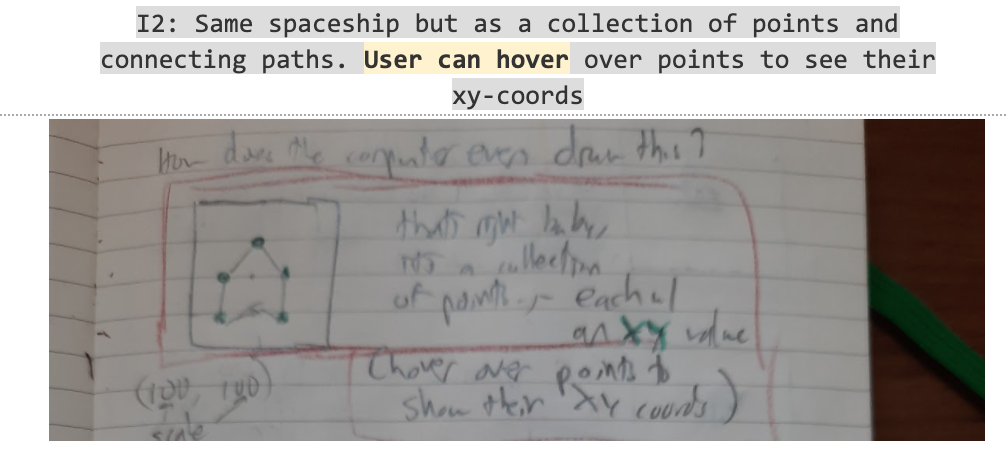 I2: Same spaceship but as a collection of points and
connecting paths. User can hover over points to see their
xy-coords
How does the computer even draw this?
that's right baby,
it's a collection
of points - each w/
an XY value
(hover over points to
show their XY coords)
(100, 100)
scale